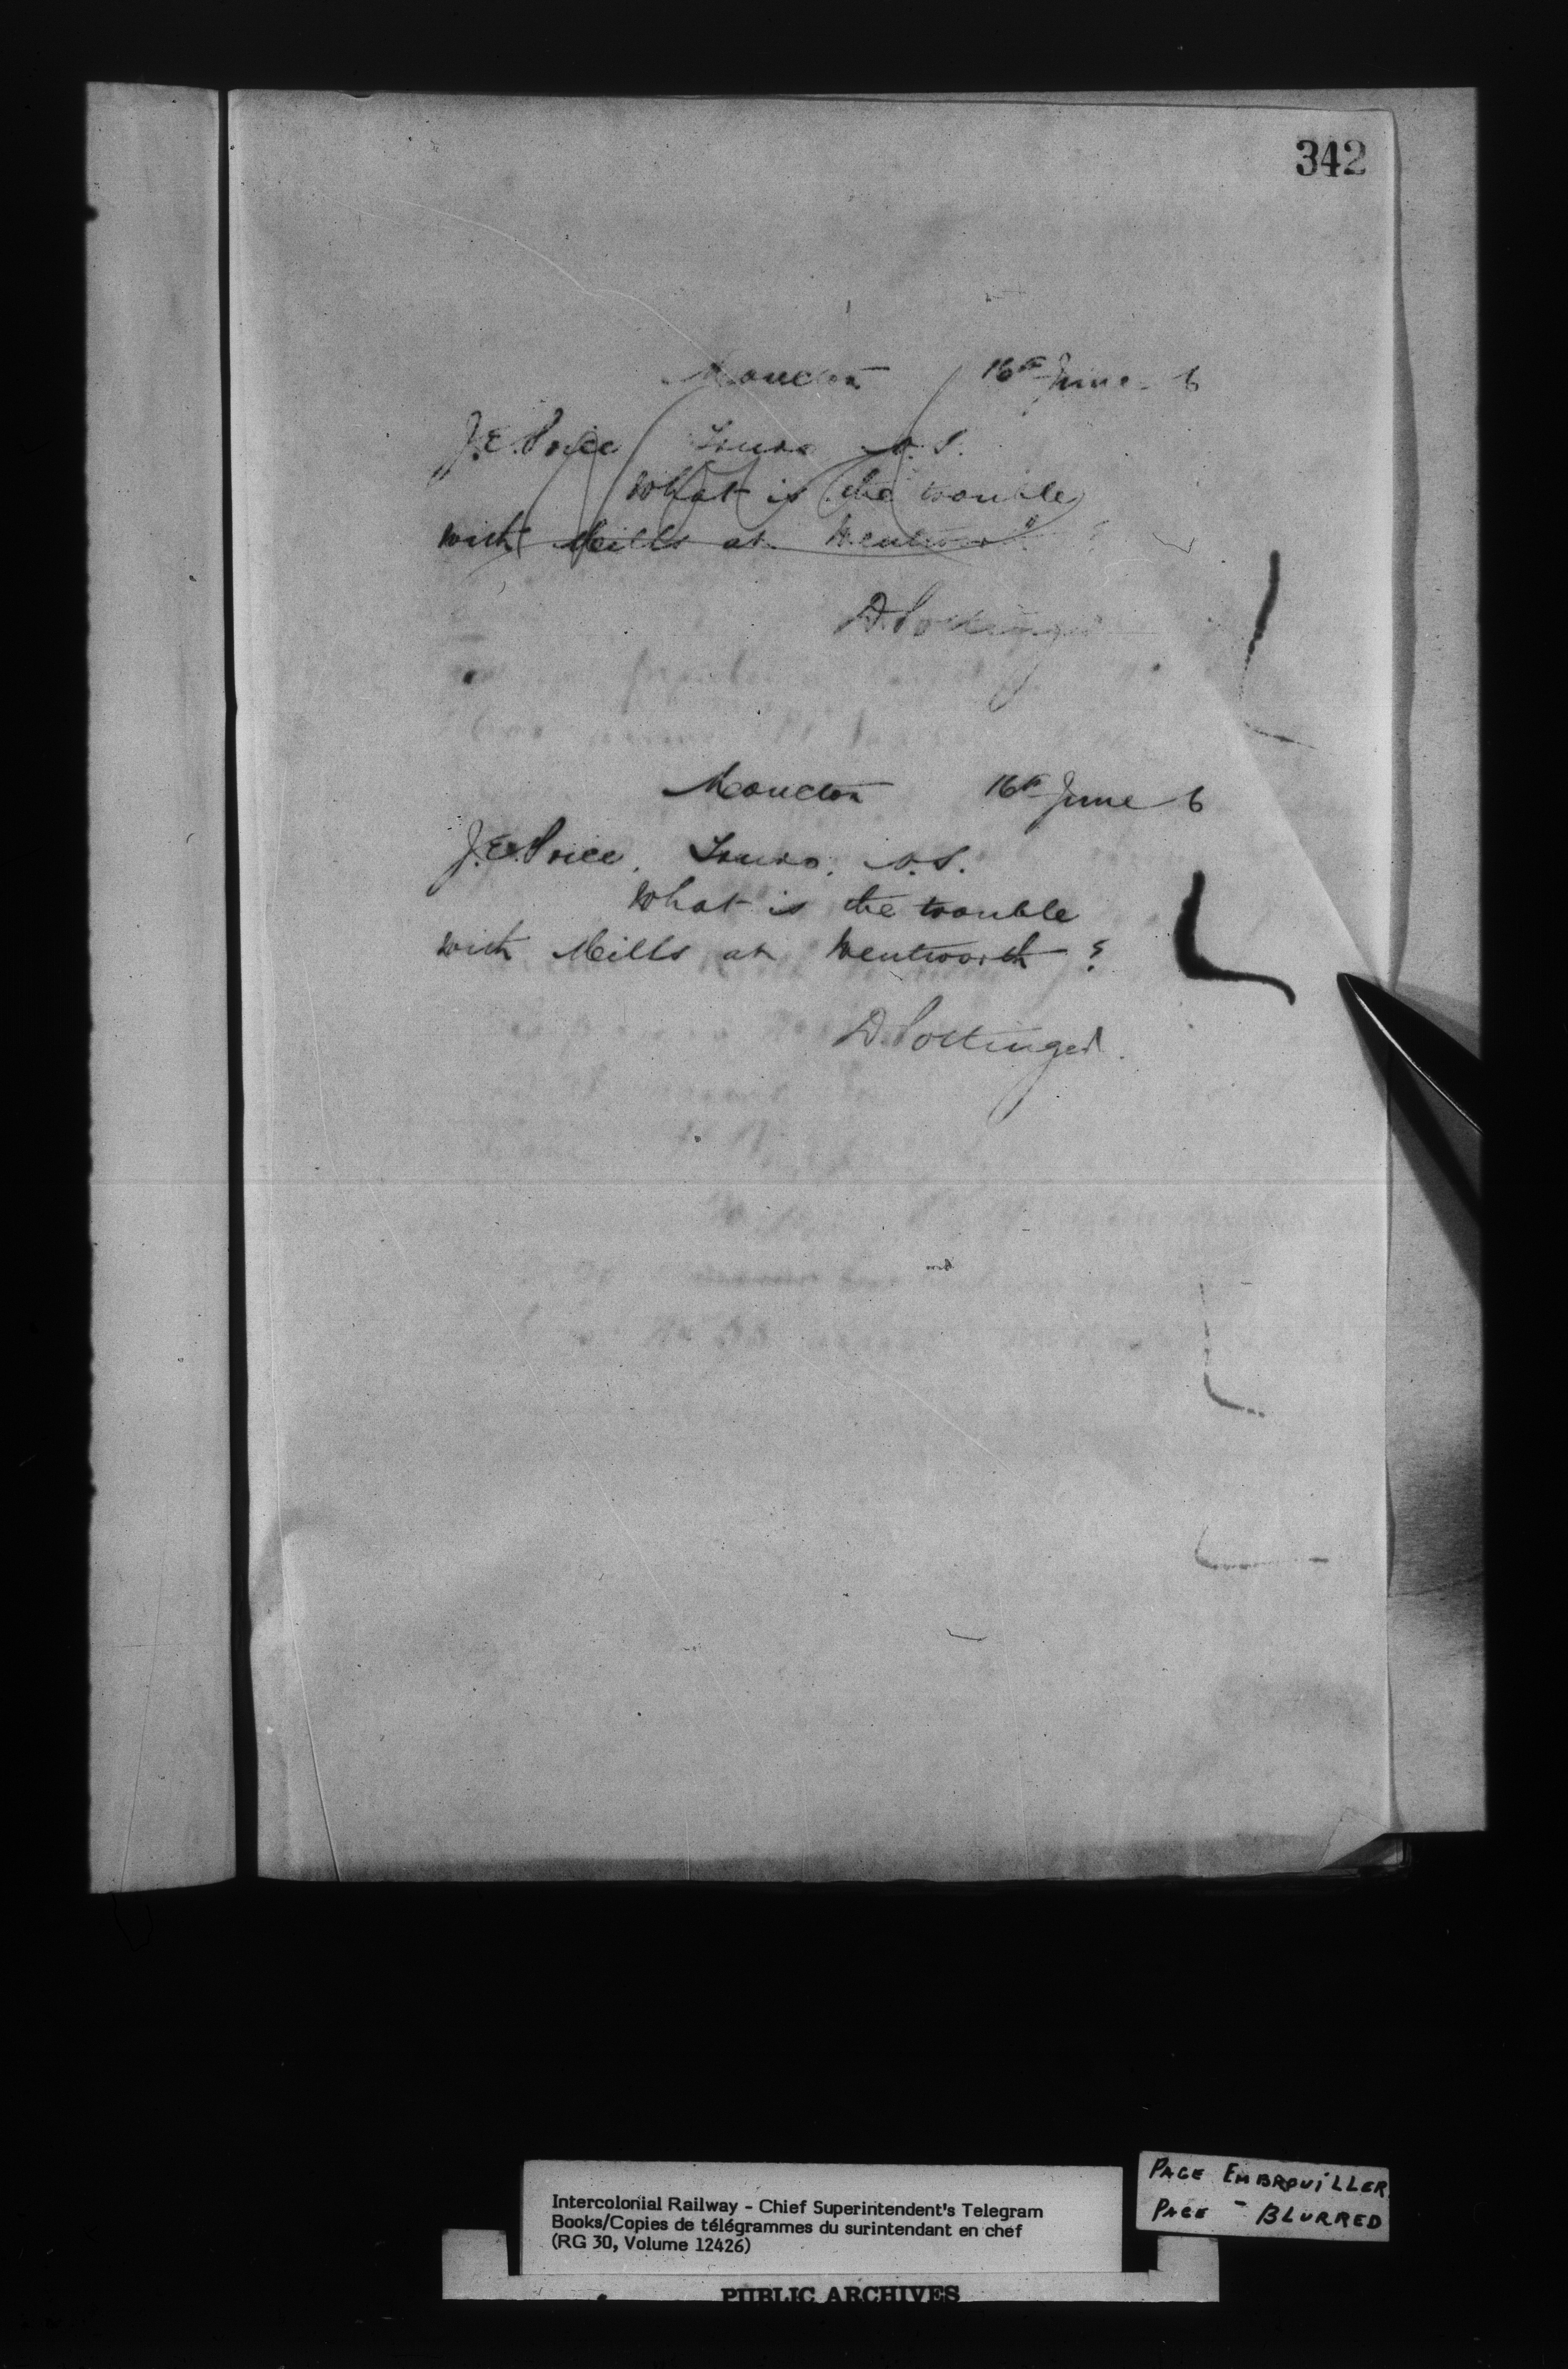 342
Moncton 16th June 6
J.E. Price Truro N.S.
What is the trouble
with Mills at Wentworth ?
D. Pottinger
Moncton 16th June 6
J.E. Price, Truro, N.S.
What is the trouble
with Mills at Wentworth ?
D. Pottinger.
Intercolonial Railway - Chief Superintendent's Telegram
Books/Copies de télégrammes du surintendant en chef
(RG 30, Volume 12426)
PUBLIC ARCHIVES
PAGE EMBROUILLER
PAGE - BLURRED